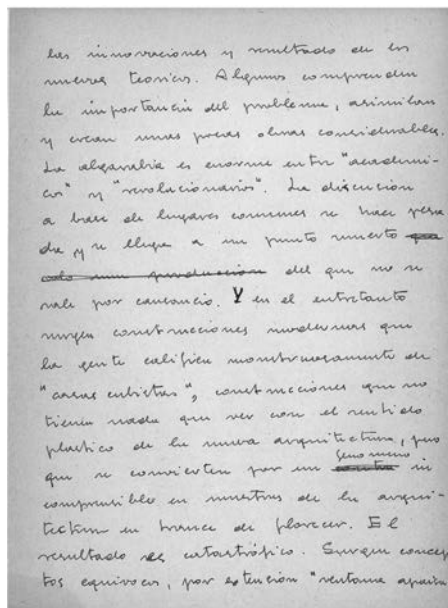 las innovaciones y resultado de las
nuevas teorias. Algunos comprenden
la importancia del problema, asimilan
y crean unas pocas obras considerables.
La algarabia es enorme entre "academi-
cos" y "revolucionarios". La discusión
a base de lugares comunes se hace pesa
da y se llega a un punto muerto
del que no se
sale por cansancio. Y en el entretanto
surgen construcciones modernas que
la gente califica monstruosamente de
"casas cubistas", construcciones que no
tienen nada que ver con el sentido
plastico de la nueva arquitectura, pero
que se convierten por un fenomeno in
comprensible en muestras de la arqui-
tectura en trance de florecer. El
resultado es catastrófico. Surgen concep
tos equivocos, por extención "ventana apaisa